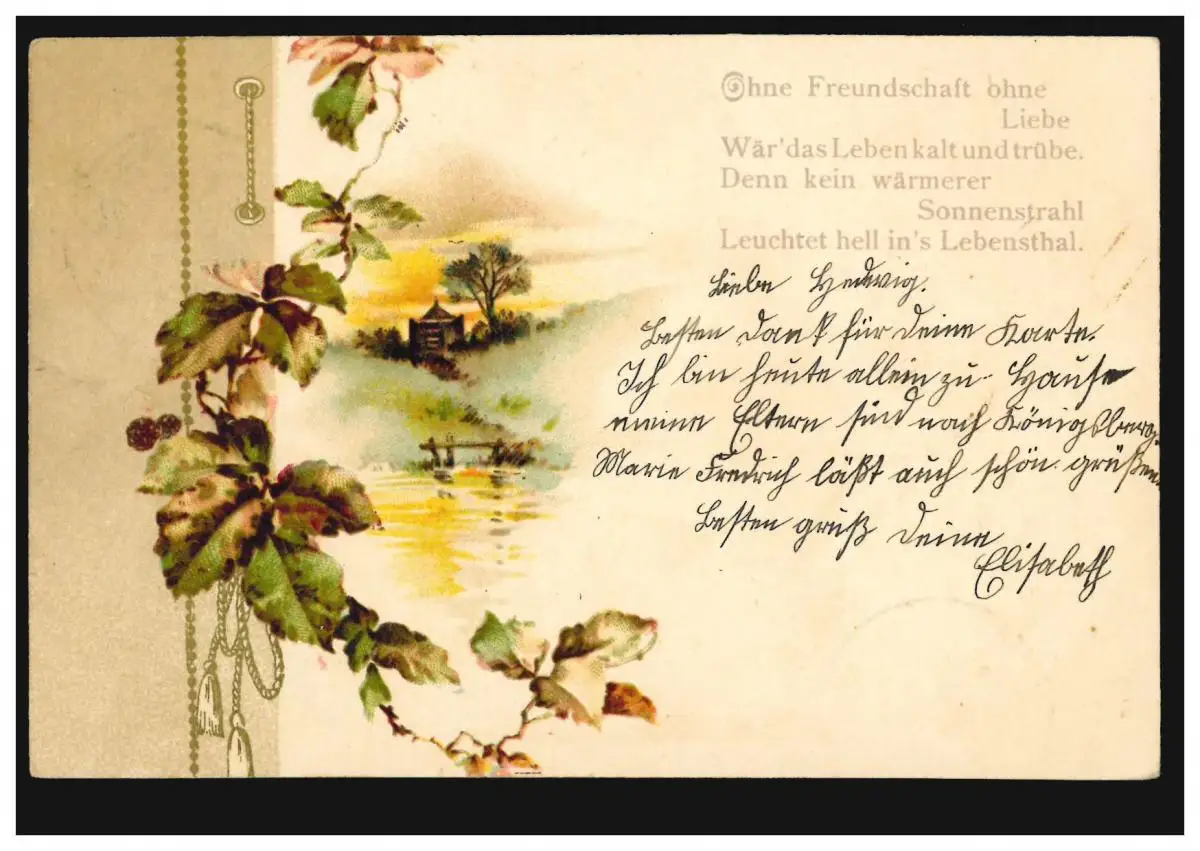 Ohne Freundschaft ohne
Liebe
Wär' das Leben kalt und trübe.
Denn kein wärmerer
Sonnenstrahl
Leuchtet hell in's Lebensthal.
Liebe Hedwig.
Besten Dank für Deine Karte.
Ich bin heute allein zu Hause
meine Eltern sind nach Königsberg.
Marie Fredrich läßt auch schön grüßen.
Besten gruß Deine
Elisabeth